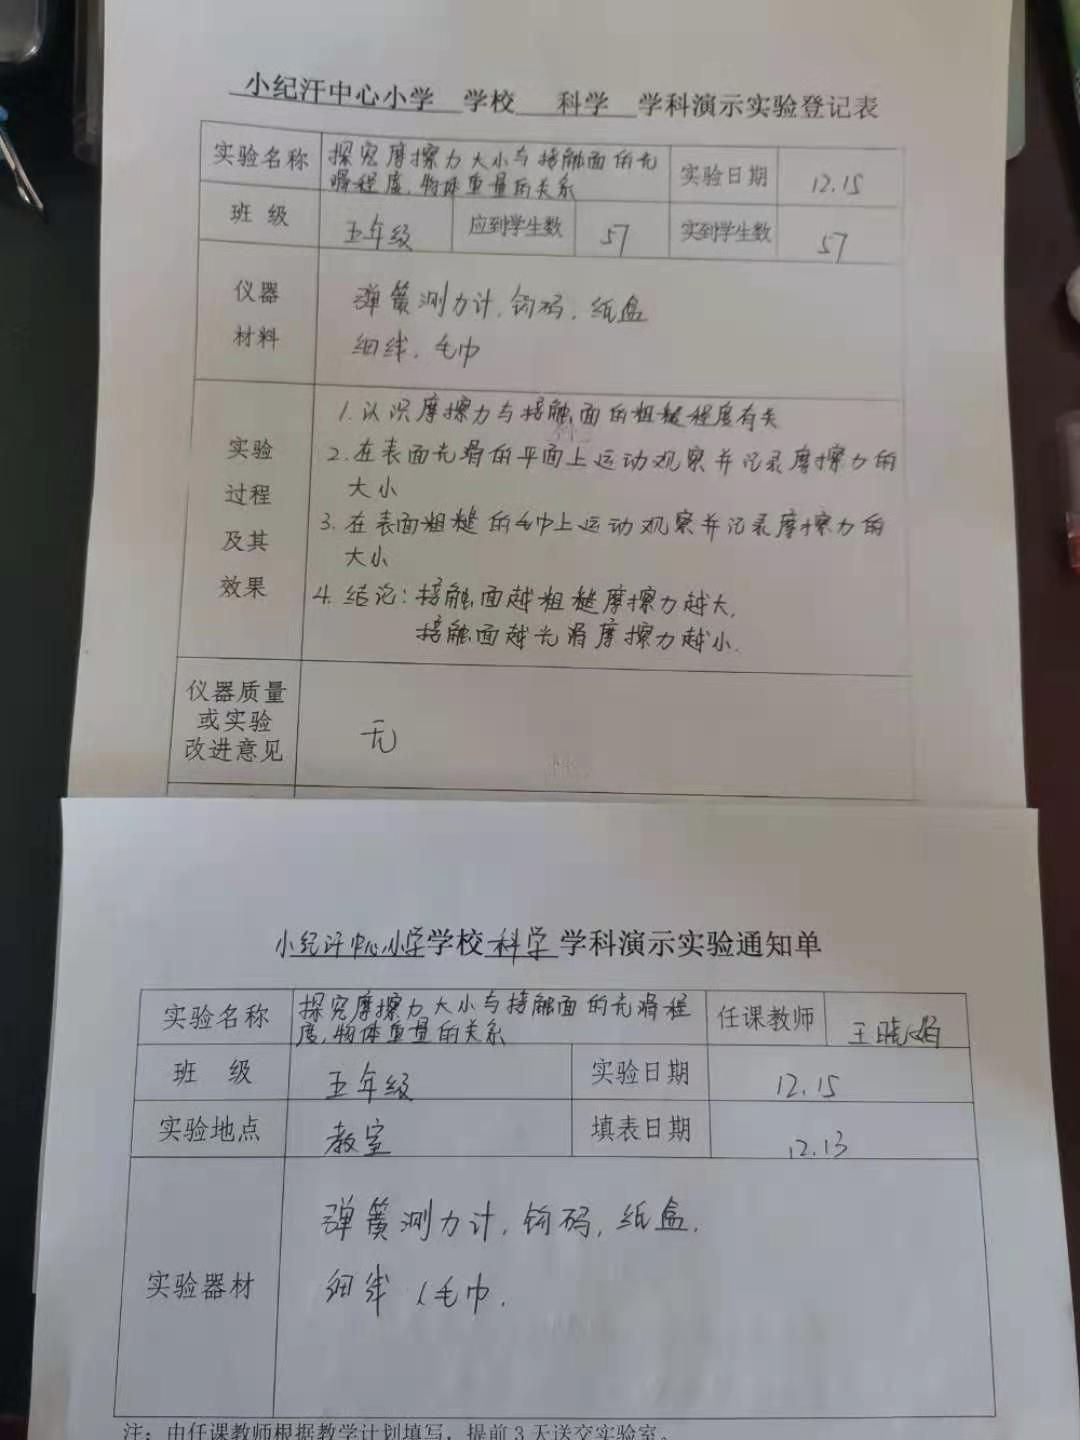 小纪汗中心小学 学校 科学 学科演示实验登记表
实验名称 探究摩擦力大小与接触面的光
滑程度,物体重量的关系 实验日期 12.15
班 级 五年级 应到学生数 57 实到学生数 57
仪器
材料
弹簧测力计,钩码,纸盒
细线,毛巾
实验
过程
及其
效果
1.认识摩擦力与接触面的粗糙程度有关
2.在表面光滑的平面上运动观察并记录摩擦力的
大小
3.在表面粗糙的毛巾上运动观察并记录摩擦力的
大小
4.结论:接触面越粗糙摩擦力越大,
接触面越光滑摩擦力越小.
仪器质量
或实验
改进意见
无
小纪汗中心小学学校科学学科演示实验通知单
实验名称 探究摩擦力大小与接触面的光滑程
度,物体重量的关系 任课教师 王晓娟
班 级 五年级 实验日期 12.15
实验地点 教室 填表日期 12.13
实验器材
弹簧测力计,钩码,纸盒,
细线,毛巾.
注:由任课教师根据教学计划填写,提前3天送交实验室。